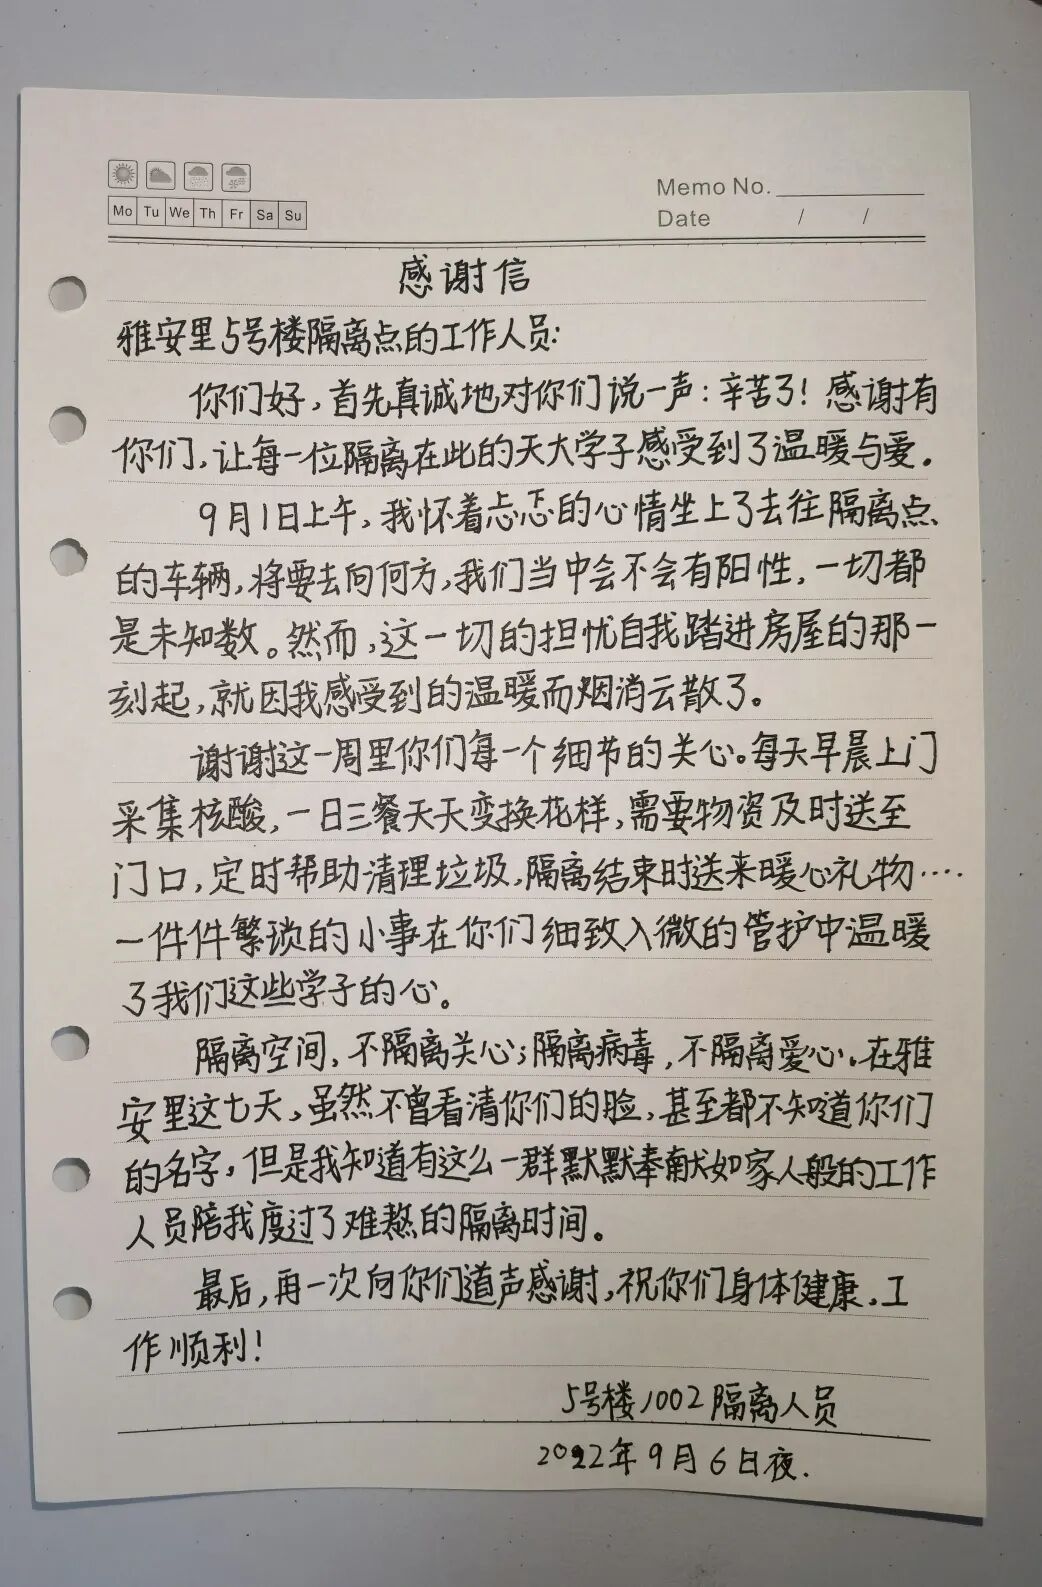 Mo Tu We Th Fr Sa Su
Memo No.
Date / /
感谢信
雅安里5号楼隔离点的工作人员:
你们好,首先真诚地对你们说一声:辛苦了!感谢有
你们,让每一位隔离在此的天大学子感受到了温暖与爱。
9月1日上午,我怀着忐忑的心情坐上了去往隔离点
的车辆,将要去向何方,我们当中会不会有阳性,一切都
是未知数。然而,这一切的担忧自我踏进房屋的那一
刻起,就因我感受到的温暖而烟消云散了。
谢谢这一周里你们每一个细节的关心。每天早晨上门
采集核酸,一日三餐天天变换花样,需要物资及时送至
门口,定时帮助清理垃圾,隔离结束时送来暖心礼物····
一件件繁琐的小事在你们细致入微的管护中温暖
了我们这些学子的心。
隔离空间,不隔离关心;隔离病毒,不隔离爱心。在雅
安里这七天,虽然不曾看清你们的脸,甚至都不知道你们
的名字,但是我知道有这么一群默默奉献如家人般的工作
人员陪我度过了难熬的隔离时间。
最后,再一次向你们道声感谢,祝你们身体健康,工
作顺利!
5号楼1002隔离人员
2022年9月6日夜.